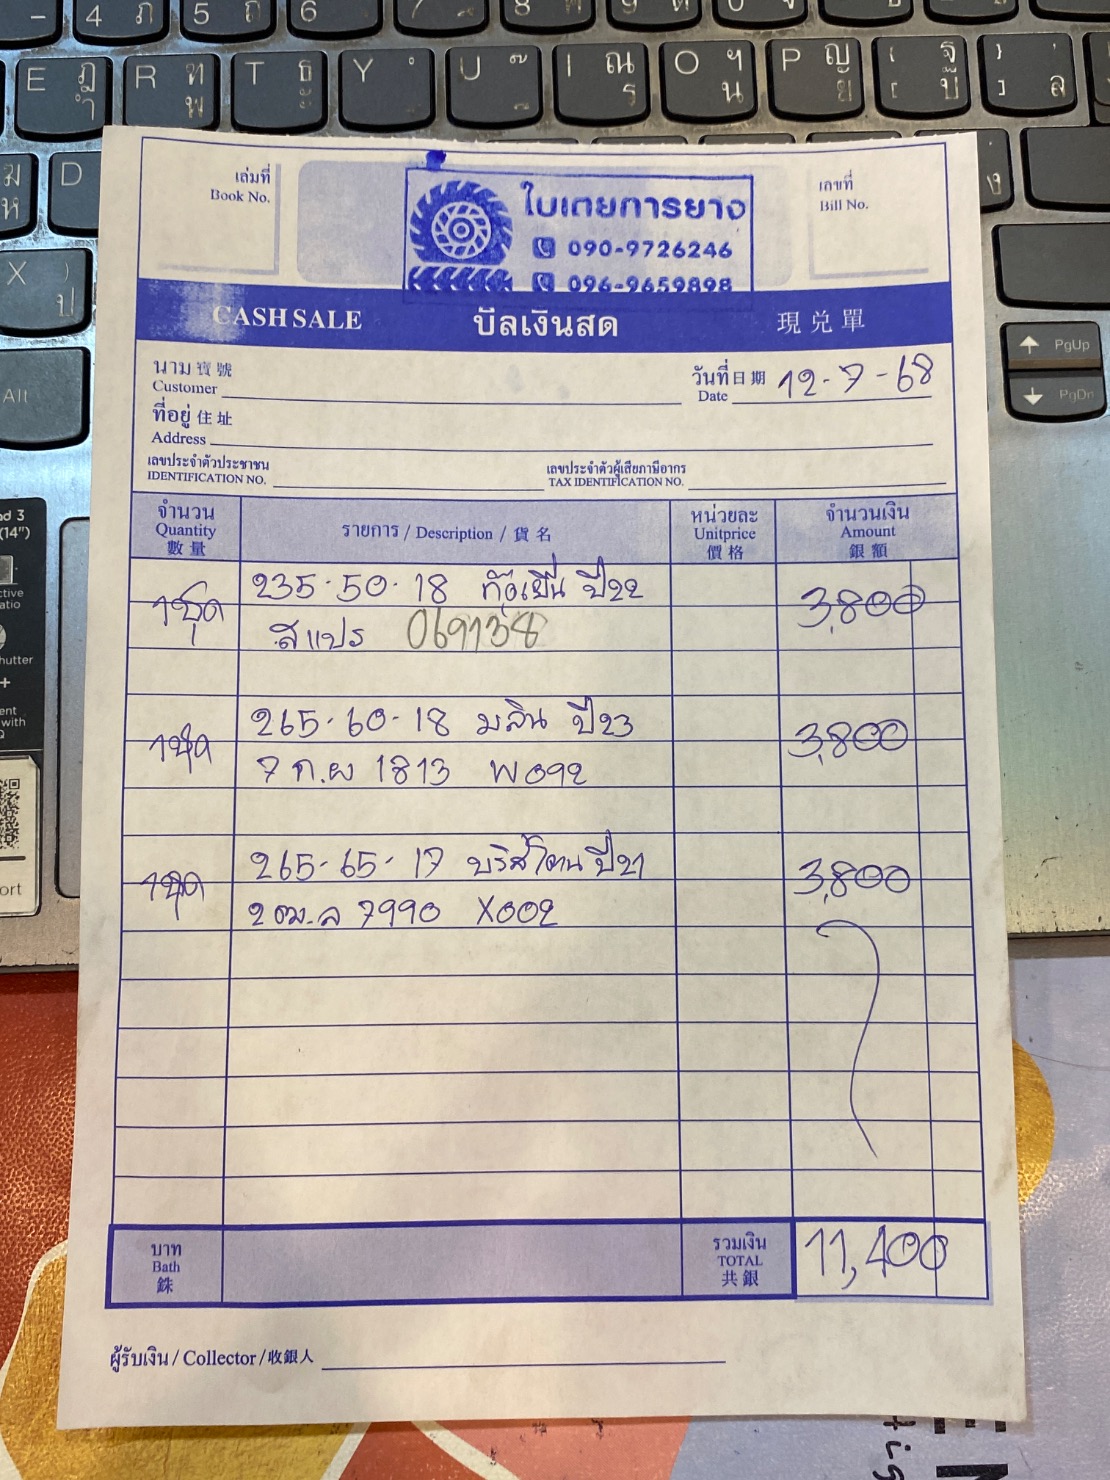 4 ภ 5 ถ 6
E ฎ ำ R ฑ พ T ธ ะ Y U ๊ I ณ ร O ฯ น P ญ ย [ ฐ บ ] , ล
D
X ) ป
Alt
PgUp
PgDn
(14")
เล่มที่
Book No.
ใบเตยการยาง
090-9726246
096-9659898
เลขที่
Bill No.
CASH SALE บิลเงินสด 現兑單
นาม 寶號
Customer
วันที่ 日期 12-7-68
Date
ที่อยู่ 住址
Address
เลขประจำตัวประชาชน
IDENTIFICATION NO.
เลขประจำตัวผู้เสียภาษีอากร
TAX IDENTIFICATION NO.
จำนวน
Quantity
數量
รายการ / Description / 貨名
หน่วยละ
Unitprice
價格
จำนวนเงิน
Amount
銀額
1ชุด 235-50-18 ปี22 3,800
สแปร 069138
1ชุด 265-60-18 มลิน ปี23 3,800
7 ก.ผ 1813 W092
1ชุด 265-65-17 บริสโตน ปี21 3,800
2ฒ.ล 7990 X002
บาท
Bath
銖
รวมเงิน
TOTAL
共銀
11,400
ผู้รับเงิน / Collector / 收銀人